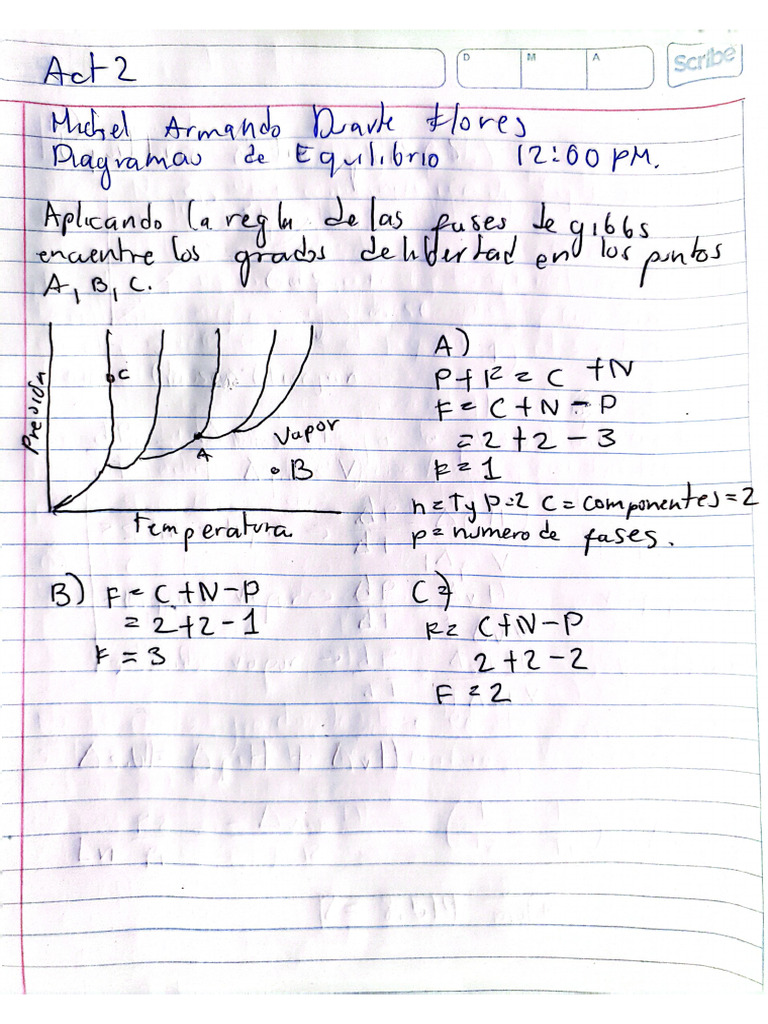 Act 2
D M A
Scribe
Michel Armando Duarte Flores
Diagramas de Equilibrio 12:00 PM.
Aplicando la regla de las fases de gibbs
encuentre los grados de libertad en los puntos
A, B, C.
Presión
C
A
Vapor
B
Temperatura
A)
P+F=C+N
F=C+N-P
=2+2-3
F=1
n=T y P=2 C=componentes=2
p=numero de fases.
B) F=C+N-P
=2+2-1
F=3
C=)
F= C+N-P
2+2-2
F=2